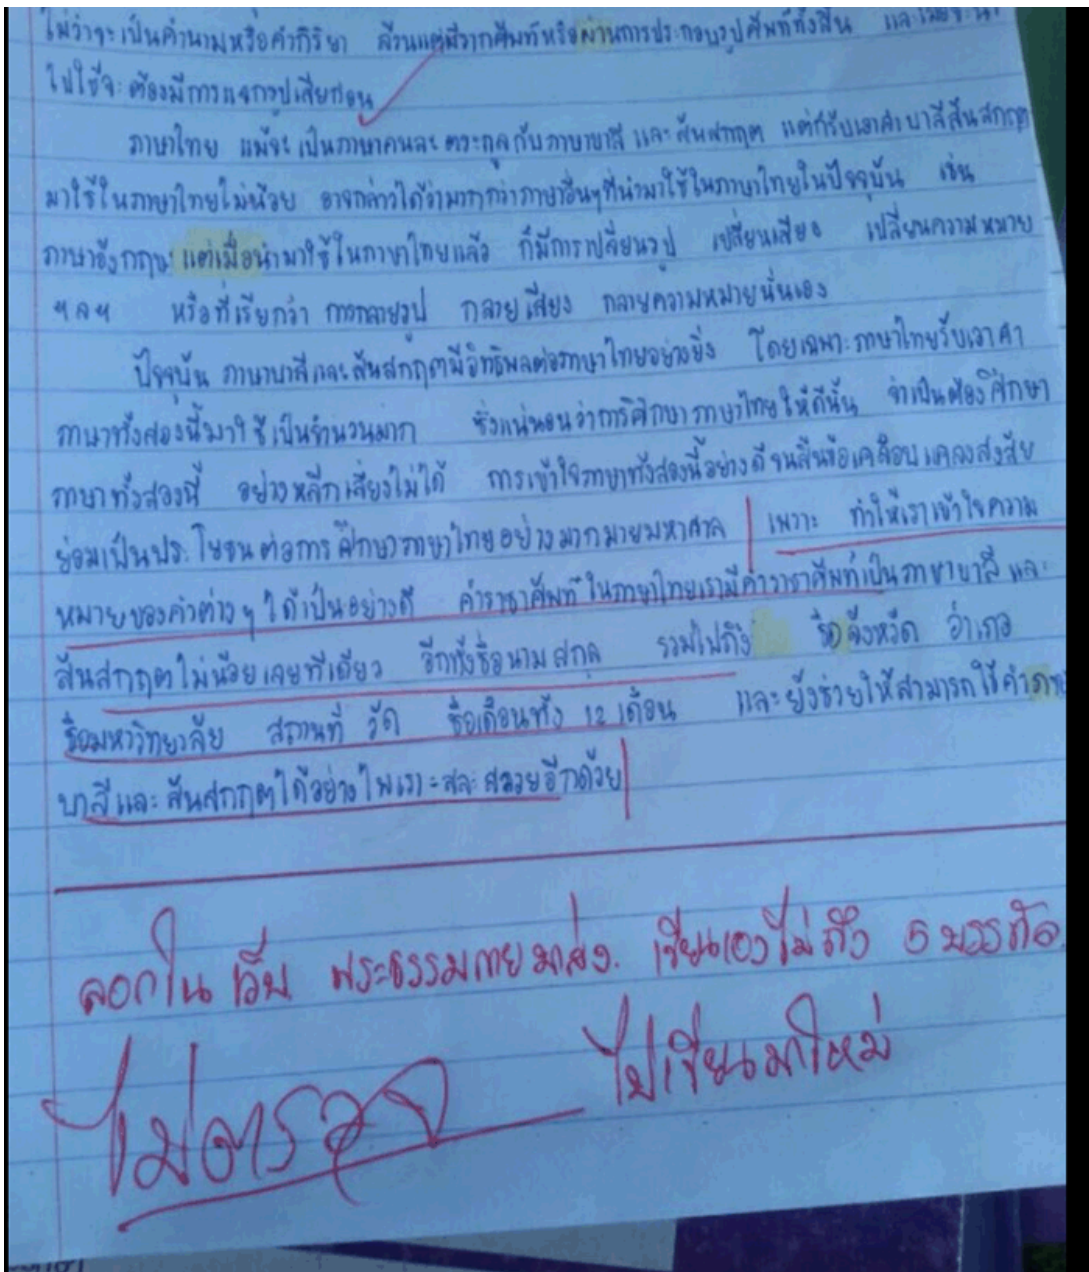 ไม่ว่าจะเป็นคำนามหรือคำกิริยา ล้วนแต่มีรากศัพท์หรือผ่านการประกอบรูปศัพท์ทั้งสิ้น และเมื่อจะนำ
ไปใช้จะต้องมีการแจกรูปเสียก่อน
ภาษาไทย แม้จะเป็นภาษาคนละตระกูลกับภาษาบาลี และสันสกฤต แต่ก็รับเอาคำบาลีสันสกฤต
มาใช้ในภาษาไทยไม่น้อย อาจกล่าวได้ว่ามากกว่าภาษาอื่นๆที่นำมาใช้ในภาษาไทยในปัจจุบัน เช่น
ภาษาอังกฤษ แต่เมื่อนำมาใช้ในภาษาไทยแล้ว ก็มีการเปลี่ยนรูป เปลี่ยนเสียง เปลี่ยนความหมาย
ฯลฯ หรือที่เรียกว่า การกลายรูป กลายเสียง กลายความหมายนั่นเอง
ปัจจุบัน ภาษาบาลีและสันสกฤตมีอิทธิพลต่อภาษาไทยอย่างยิ่ง โดยเฉพาะภาษาไทยรับเอาคำ
ภาษาทั้งสองนี้มาใช้เป็นจำนวนมาก ซึ่งแน่นอนว่าการศึกษาภาษาไทยให้ดีนั้น จำเป็นต้องศึกษา
ภาษาทั้งสองนี้ อย่างหลีกเลี่ยงไม่ได้ การเข้าใจภาษาทั้งสองนี้อย่างดีจนสิ้นข้อเคลือบแคลงสงสัย
ย่อมเป็นประโยชน์ต่อการศึกษาภาษาไทยอย่างมากมายมหาศาล เพราะ ทำให้เราเข้าใจความ
หมายของคำต่างๆได้เป็นอย่างดี คำราชาศัพท์ในภาษาไทยเรามีคำราชาศัพท์เป็นภาษาบาลีและ
สันสกฤตไม่น้อยเลยทีเดียว อีกทั้งชื่อนามสกุล รวมไปถึง ชื่อจังหวัด อำเภอ
ชื่อมหาวิทยาลัย สถานที่ วัด ชื่อเดือนทั้ง 12 เดือน และยังช่วยให้สามารถใช้คำ
บาลีและสันสกฤตได้อย่างไพเราะสละสลวยอีกด้วย
ลอกใน เว็บ พระธรรมกาย มาส่ง. เขียนเองไม่ถึง 5 บรรทัด
ไม่ตรวจ ไปเขียนมาใหม่